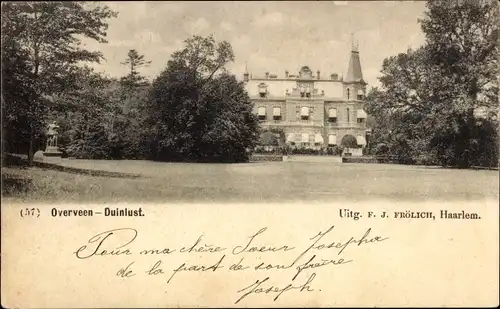 (57) Overveen – Duinlust. Uitg. F. J. FRÖLICH, Haarlem.
Pour ma chère Soeur Josepha
de la part de son frère
Joseph.